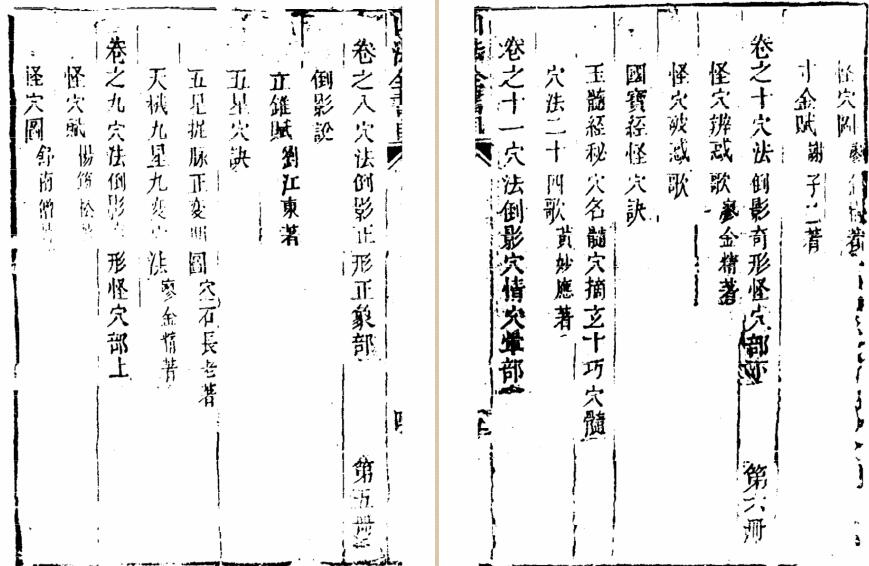 卷之八穴法倒影正形正象部 第五冊
倒影說
正錐賦 劉江東著
五星穴訣
五星捉脉正変明圖 穴石長老著
天機九星九变穴法 廖金精著
卷之九穴法倒影 形怪穴部上
怪穴賦 楊筠松著
怪穴圖
怪穴圖 廖金精著
寸金賦 謝子 著
卷之十穴法倒影奇形怪穴部 第六冊
怪穴辨惑歌 廖金精著
怪穴破惑歌
國寶經怪穴訣
玉髓經秘穴名髓穴摘玄十巧穴髓
穴法二十四歌 黃妙應著
卷之十一穴法倒影穴情穴暈部